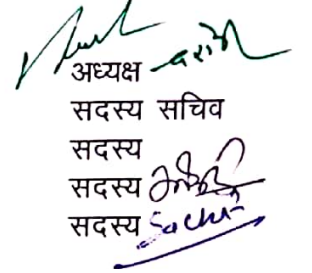 अध्यक्ष
सदस्य सचिव
सदस्य
सदस्य
सदस्य Sachin